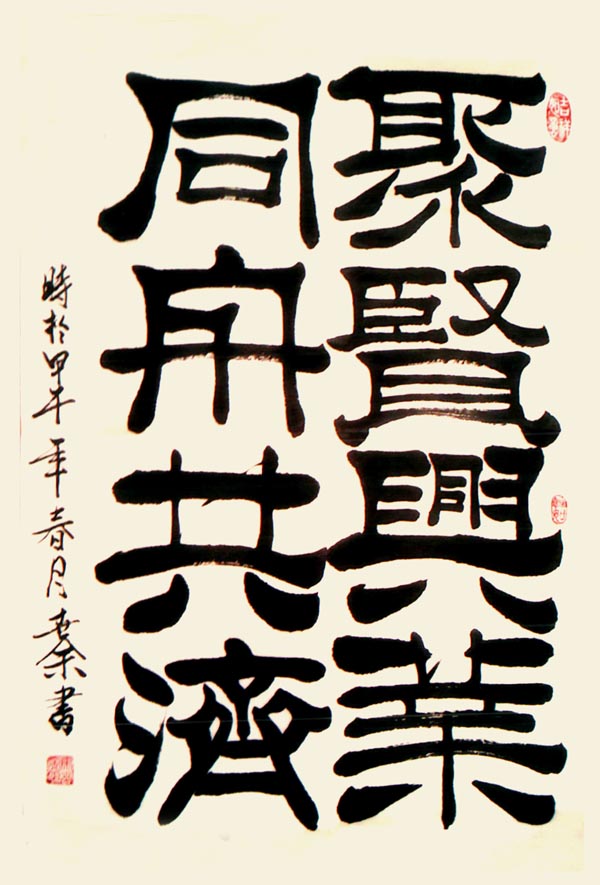 聚賢興業
同舟共濟
時於甲午年春月書